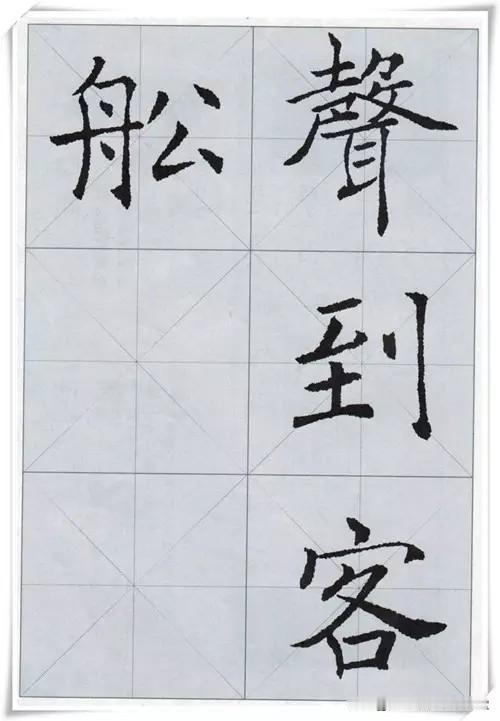 聲到客
舩